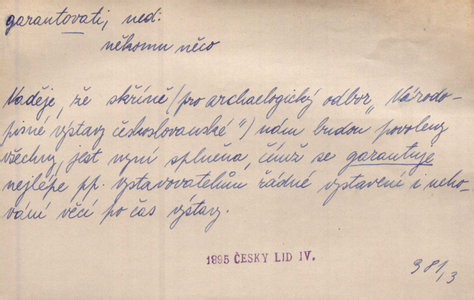 garantovati, ned.
někomu něco
Naděje, že skříně (pro archaelogický odbor „Národo-
pisné výstavy českoslovanské") nám budou povoleny
všechny, jest nyní splněna, čímž se garantuje
nejlépe pp. vystavovatelům řádné vystavení i ucho-
vání věcí po čas výstavy.
1895 ČESKÝ LID IV.
381/3